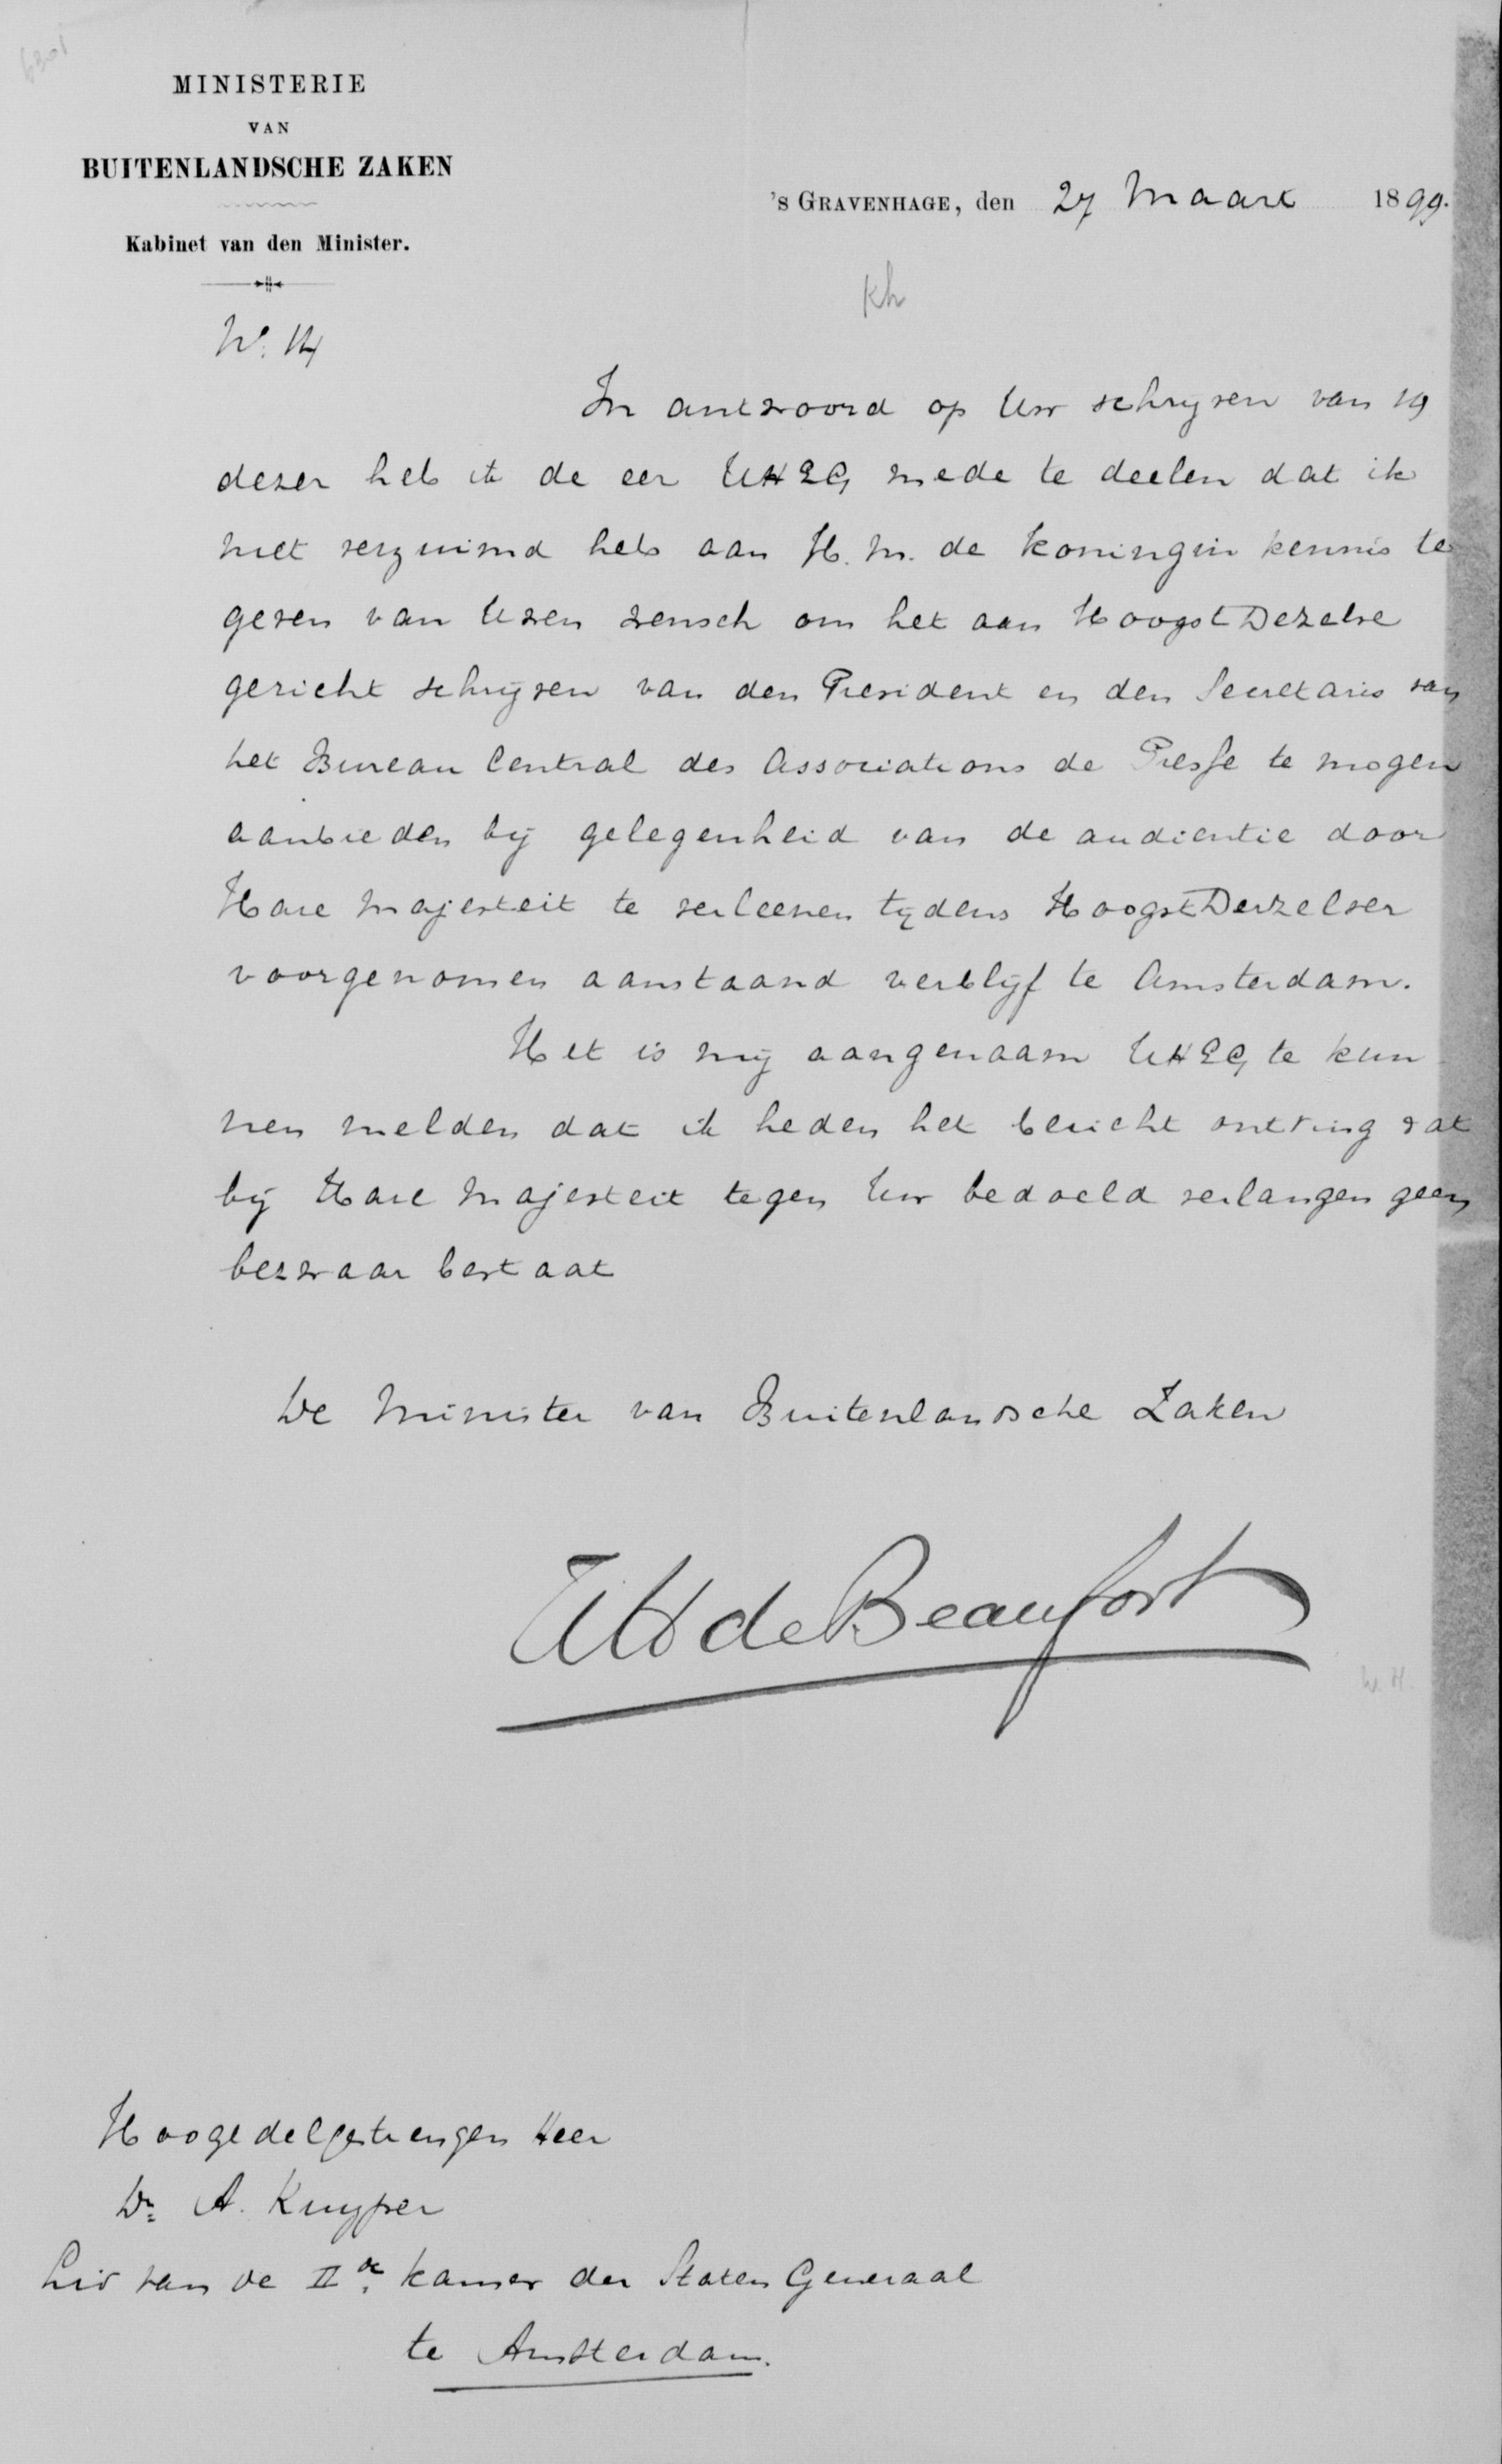 6301
MINISTERIE
VAN
BUITENLANDSCHE ZAKEN
Kabinet van den Minister.
'S GRAVENHAGE, den 27 Maart 1899.
Kh
No. 14
In antwoord op Uw schrijven van 19
dezer heb ik de eer UHEG mede te deelen dat ik
niet verzuimd heb aan H. M. de Koningin kennis te
geven van Uwen wensch om het aan HoogstDezelve
gericht schrijven van den President en den Secretaris van
het Bureau Central des Associations de Presse te mogen
aanbieden bij gelegenheid van de audientie door
Hare Majesteit te verleenen tijdens HoogstDerzelver
voorgenomen aanstaand verblijf te Amsterdam.
Het is mij aangenaam UHEG te kun
nen melden dat ik heden het bericht ontving dat
bij Hare Majesteit tegen Uw bedoeld verlangen geen
bezwaar bestaat
De Minister van Buitenlandsche Zaken
WH de Beaufort
W. H.
Hoogedelgestrengen Heer
Dr. A. Kuyper
Lid van de IIde Kamer der Staten Generaal
te Amsterdam.